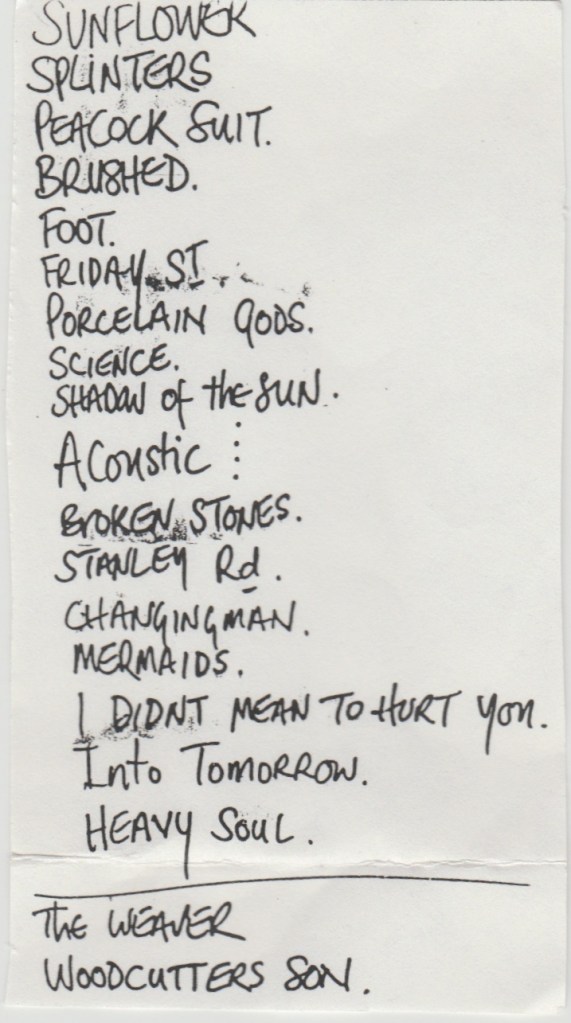 SUNFLOWER
SPLINTERS
PEACOCK SUIT.
BRUSHED.
FOOT.
FRIDAY ST
PORCELAIN GODS.
SCIENCE.
SHADOW of the SUN.
Acoustic :
BROKEN STONES.
STANLEY Rd.
CHANGINGMAN.
MERMAIDS.
I DIDNT MEAN TO HURT YOU.
Into Tomorrow.
HEAVY SOUL.
The WEAVER
WOODCUTTERS SON.